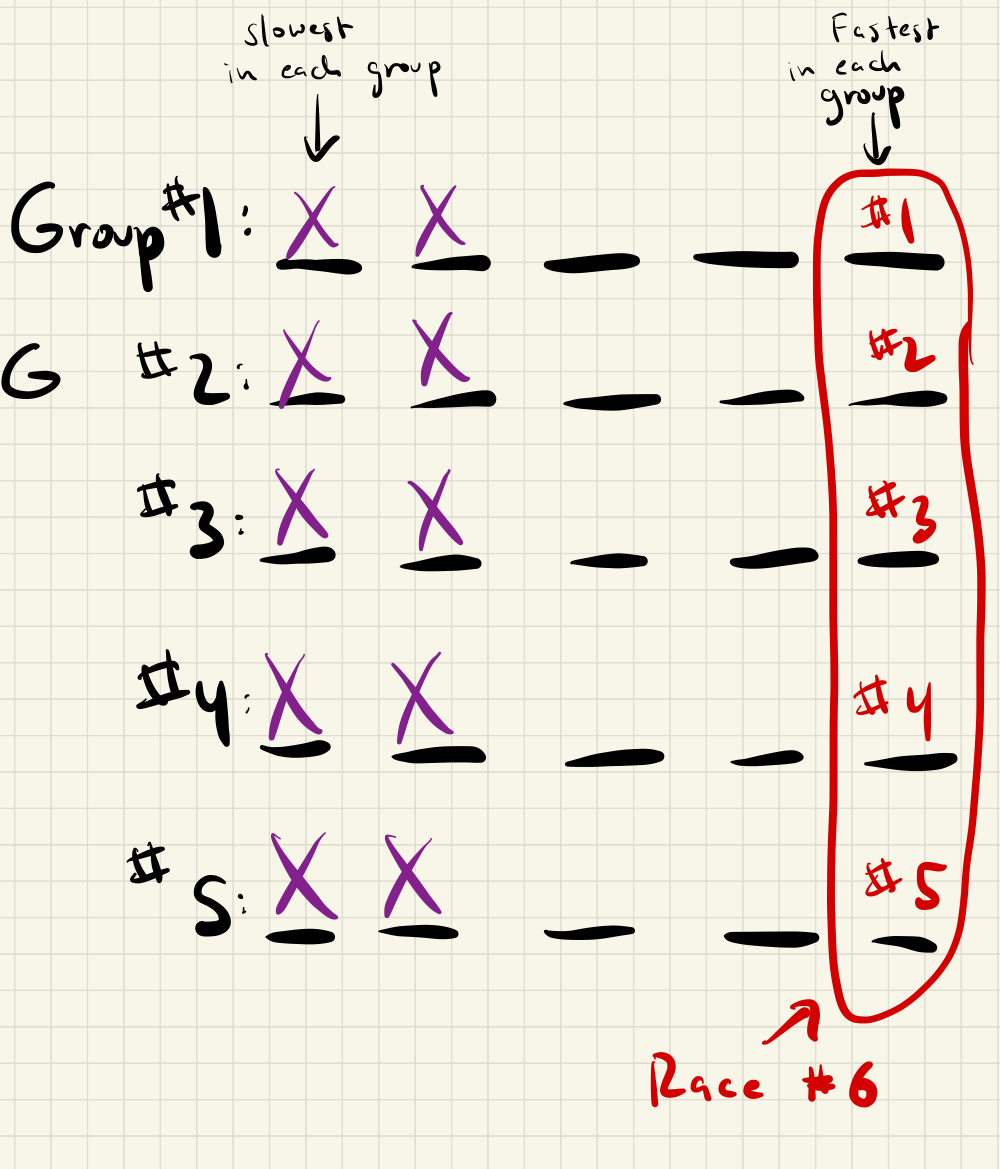 slowest
in each group
Fastest
in each
group
Group #1: X X #1
G #2: X X #2
#3: X X #3
#4: X X #4
#5: X X #5
Race #6